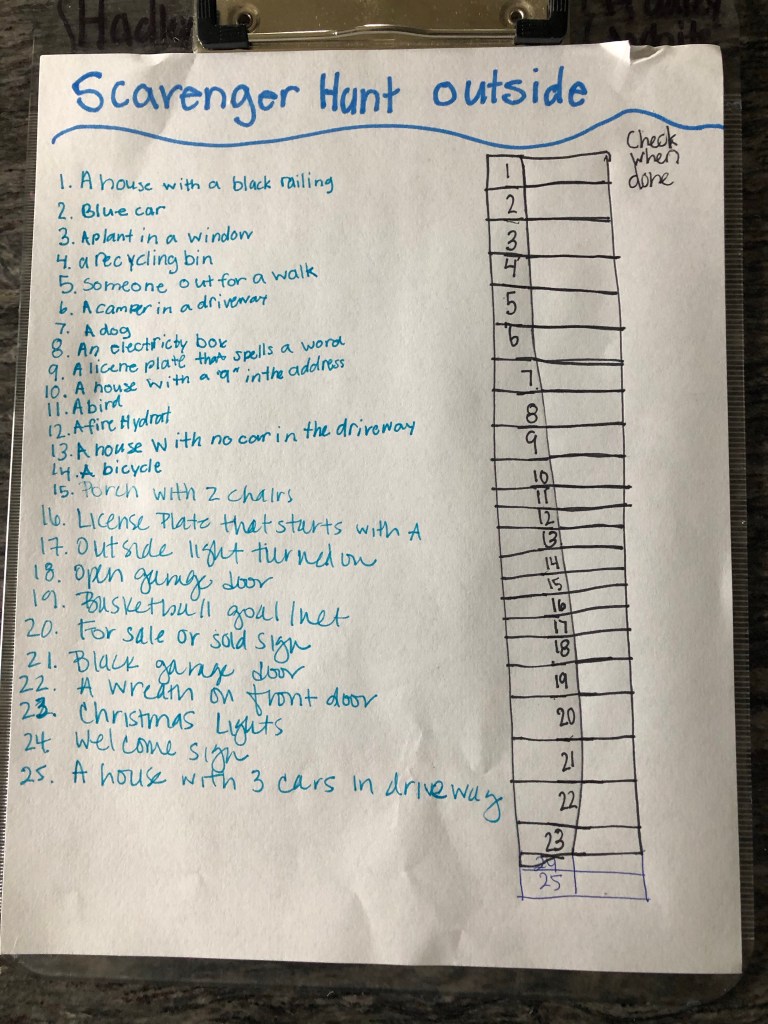 Hadley
Scavenger Hunt outside
Check
when
done
1. A house with a black railing
2. Blue car
3. A plant in a window
4. a recycling bin
5. Someone out for a walk
6. A camper in a driveway
7. A dog
8. An electricty box
9. A licene plate that spells a word
10. A house with a "9" in the address
11. A bird
12. A fire Hydrat
13. A house with no car in the driveway
14. A bicycle
15. Porch with 2 chairs
16. License Plate that starts with A
17. Outside light turned on
18. Open garage door
19. Basketball goal/net
20. For sale or sold sign
21. Black garage door
22. A wreath on front door
23 Christmas Lights
24 Welcome sign
25. A house with 3 cars in driveway
1
2
3
4
5
6
7
8
9
10
11
12
13
14
15
16
17
18
19
20
21
22
23
24
25